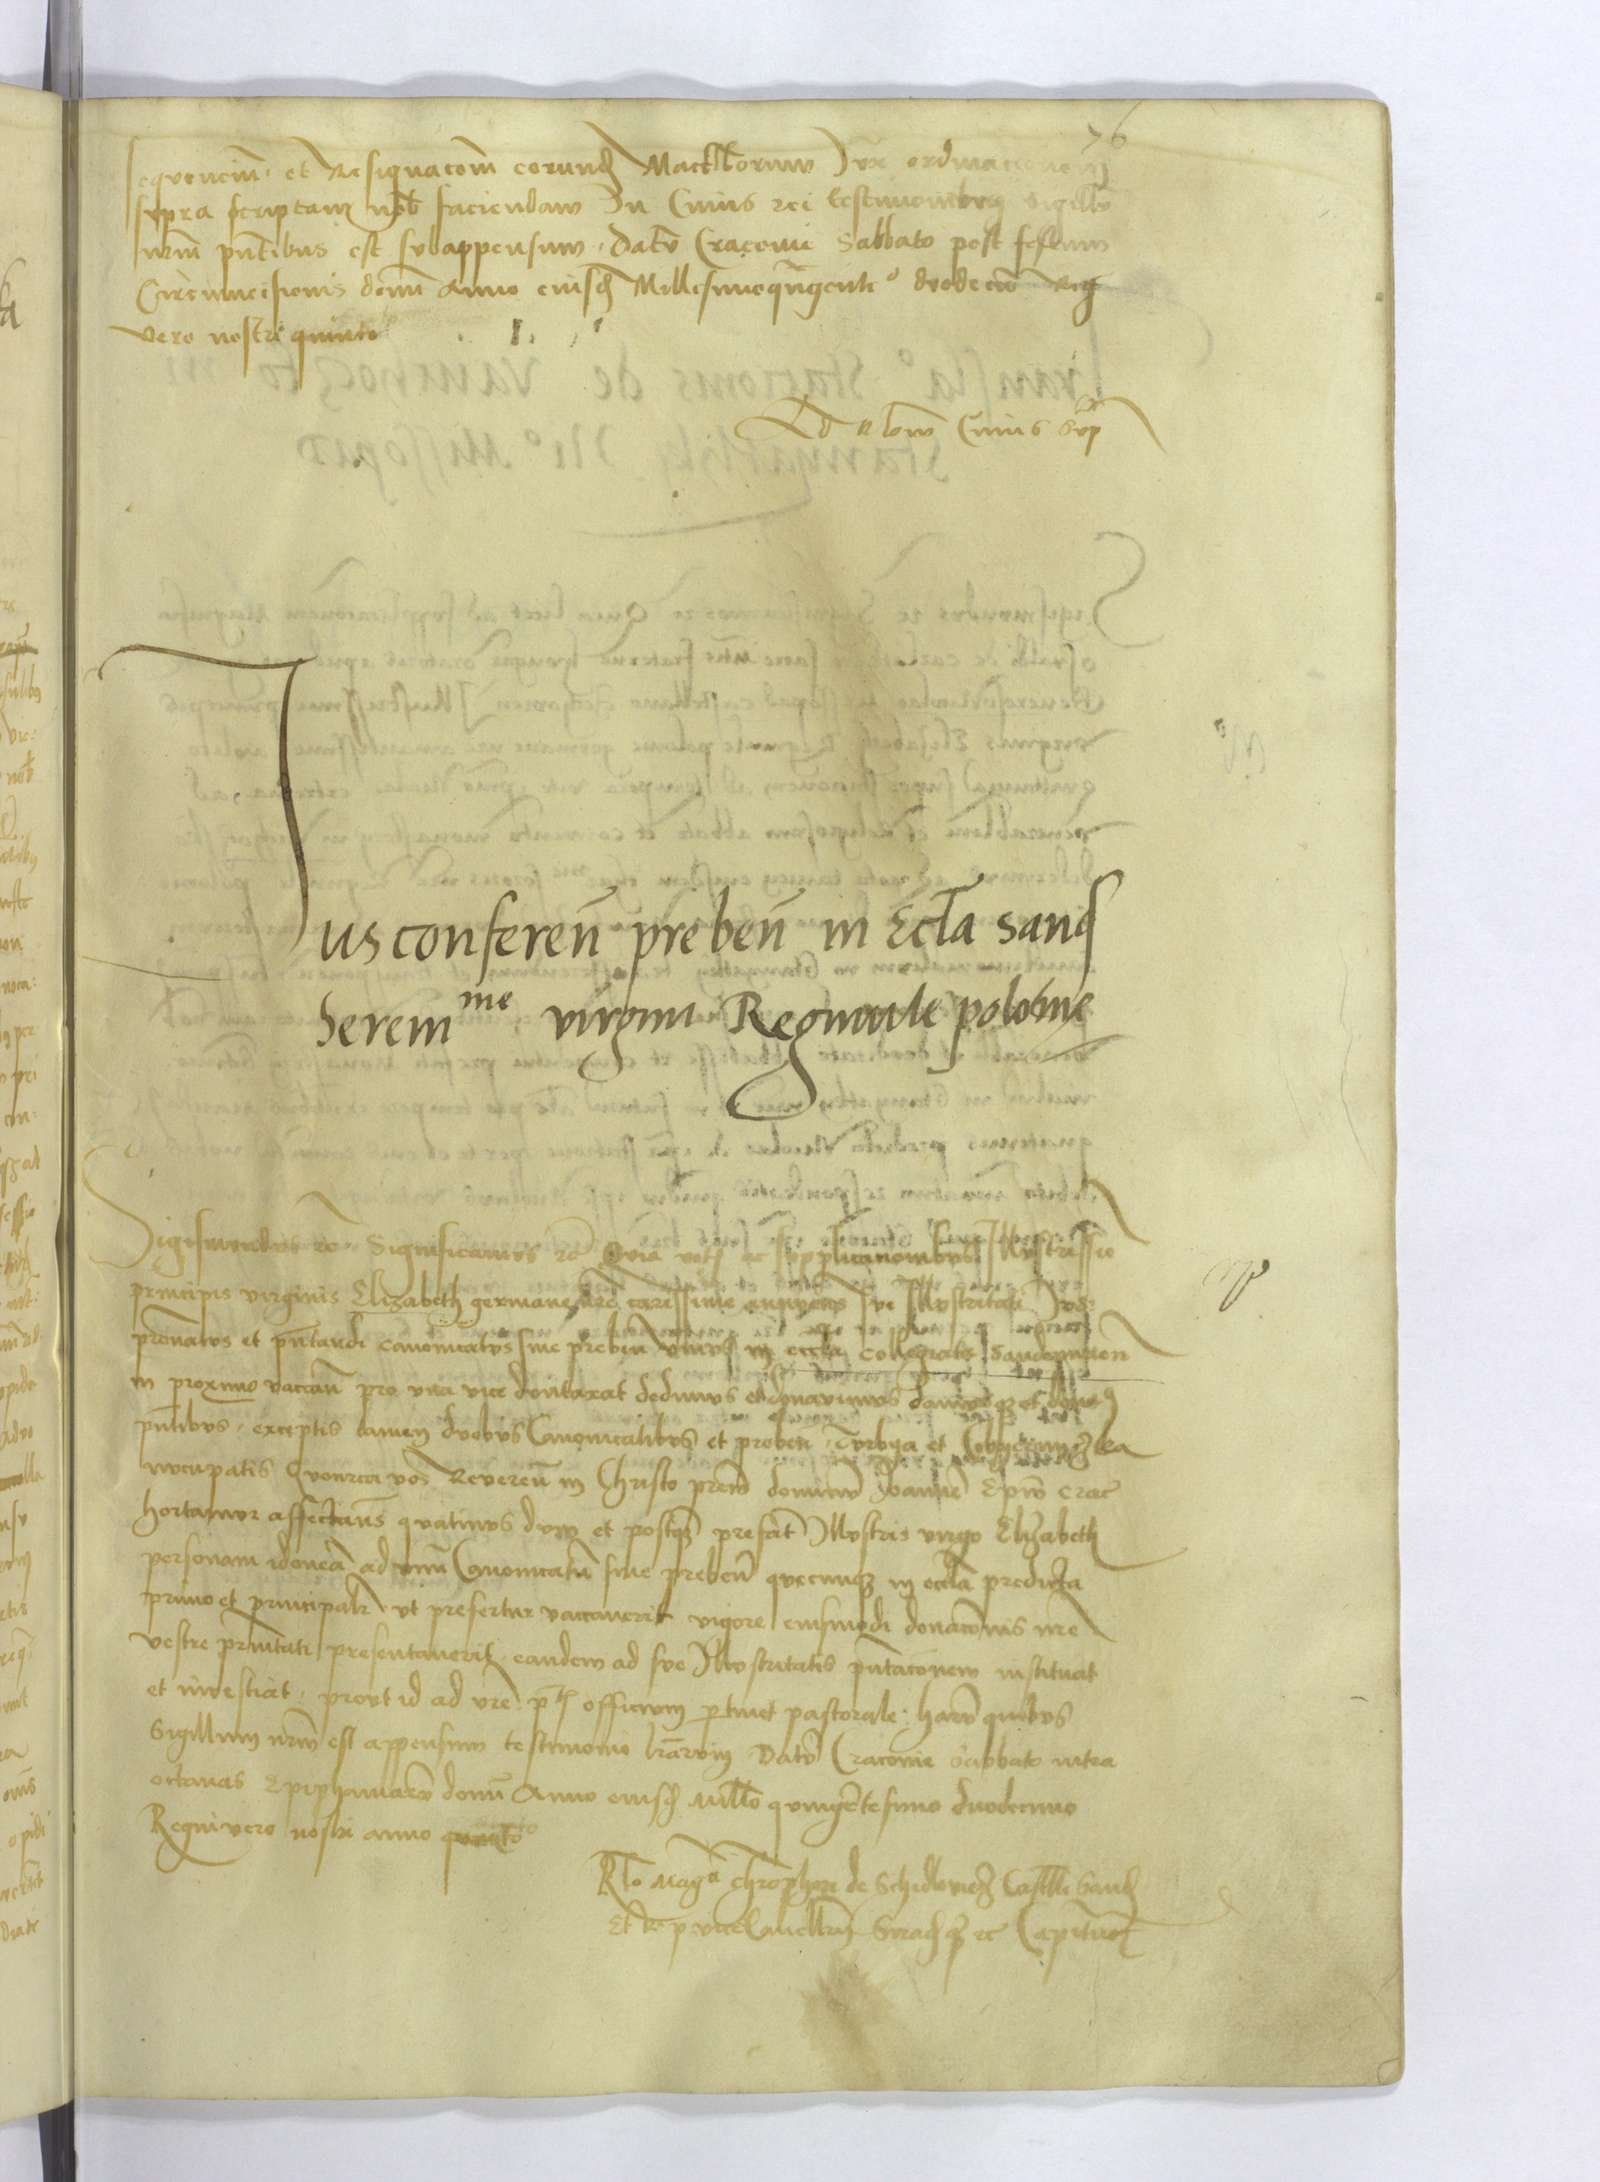 76
sequencium et Resignacom̄ eorund Mactl̄lorum Jux ordinacionem
supra scriptam nob̄ faciendam In Cuius rei testimonium Sigillū
nr̄m pn̄tibus est subappensum. Datū Cracovie Sabbato post festum
Circumcisionis domī Anno eiusd Millesimoqūgente° duodecīo Reg
vero nostri quinto
Ad R̄lom̄ Cuius sup
Jus conferen̄ preben̄ in Eccl̄a Sand
Sereni^me virgini Reginule polonie
Sigismundus rc̄ Significamus rc̄ Quia votis ac supplicacionibus Illustrissīe
principis virginis Elizabeth germane nr̄e carissime annuentes sue Illustritati Jus
pr̄onatus et pn̄tandi canonicatus sive preben̄ unius in eccl̄a collegiata Sandomirien̄
in proximo vaccan̄ pro una vice duntaxat dedimus et donavimus damusq et donam
pn̄tibus. exceptis tamen duobus Canonicatibus et preben̄ Turbya et
nūcupatis Quocirca vos Reveren̄ in Christo prem̄ dominū Joannē Ep̄m̄ crac̄
hortamur affectan̄s quatinus dum et postq̄ȝ prefāt Illustris virgo Elizabeth
personam idoneā ad unū Canonicatū sive preben̄ quecunqȝ in eccl̄a predicta
primo et principalr̄ ut prefertur vaccaverit vigore eiusmodi donacōnis nr̄e
vestre pr̄nitati presentaverit, eandem ad sue Illustritatis pn̄tacōnem instituat
et investiat, prout id ad vr̄e p^tis officium p̱tinet pastorale: harū quibus
Sigillum nr̄m est appensum testimonio lr̄arum Datū Cracovie Sabbato intra
octavas Epiphaniarū domī Anno eiusd Mill̄o quingētesimo duodecimo
Regni vero nostri anno quinto
R̄lo Mag^ci Chr̄ophori de Schidlovyecz Castll̄i Sand
Et R p vicecancellarij Siradqȝ rc̄ Capitaneī